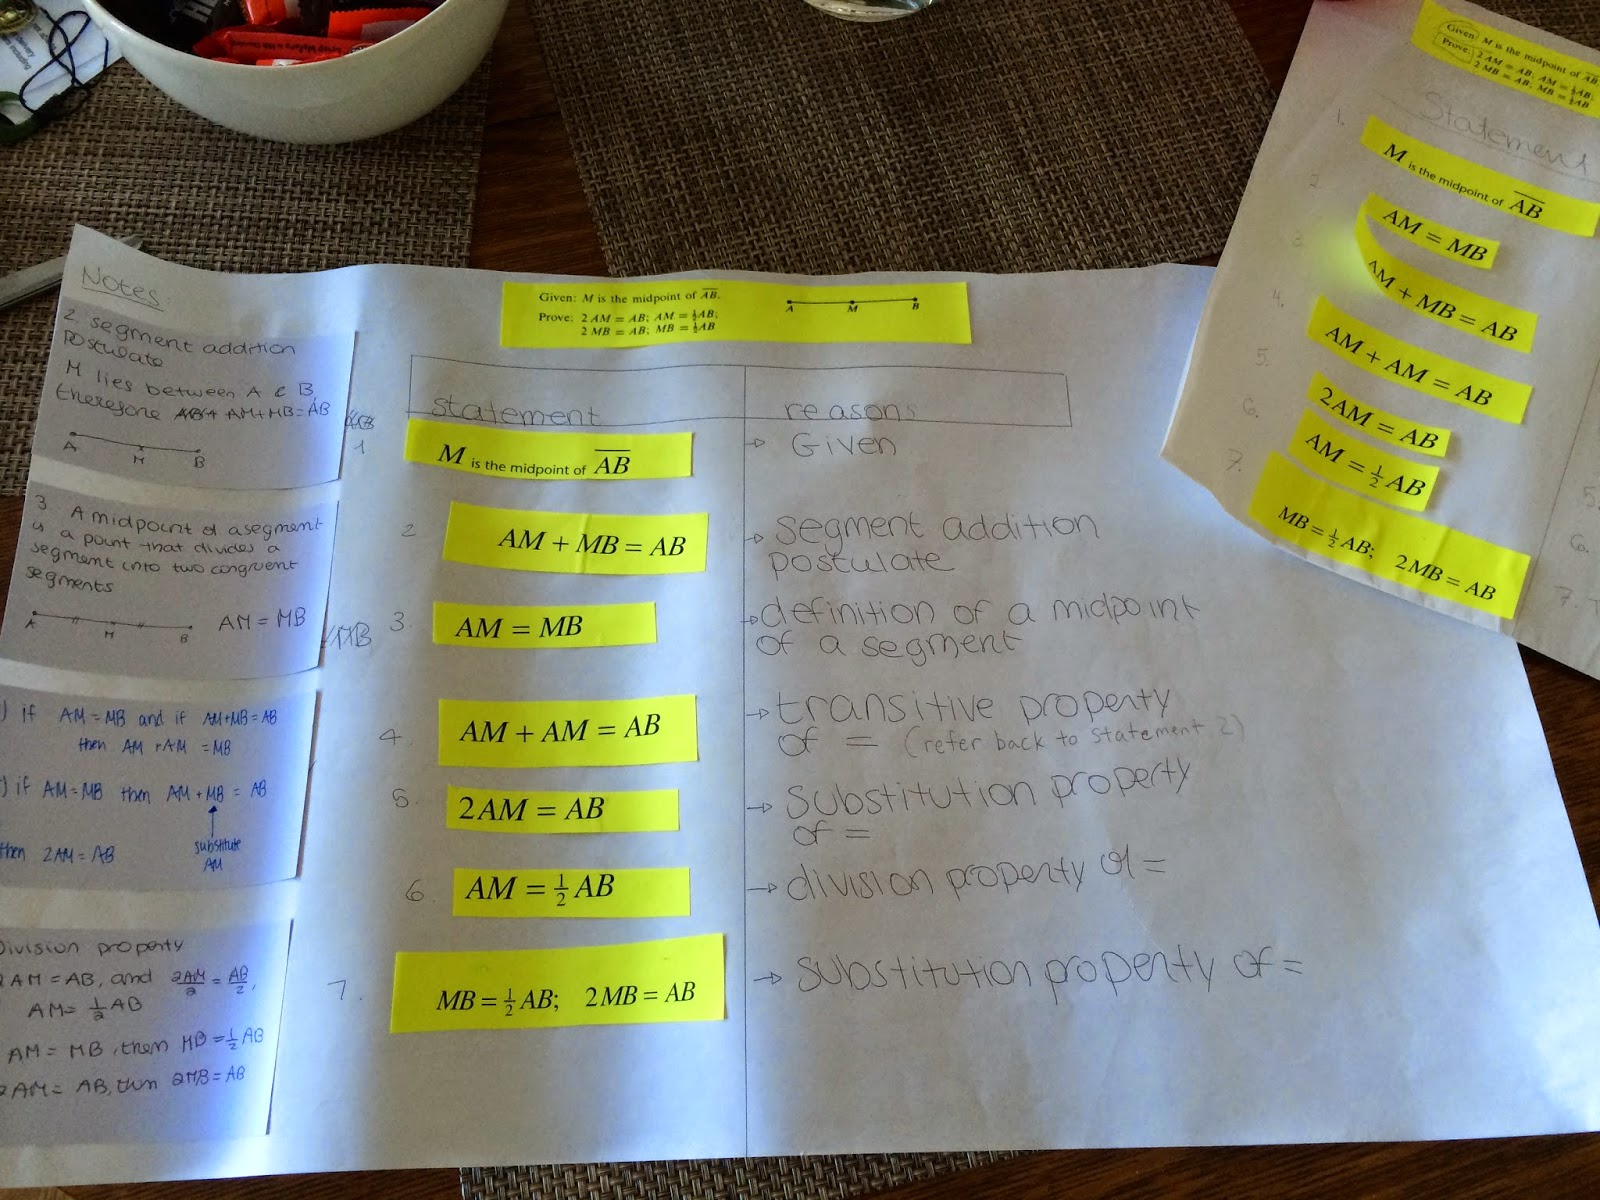 Notes:
2. segment addition
postulate
M lies between A & B,
therefore AM+MB=AB
A M B
3. A midpoint of a segment
is a point that divides a
segment into two congruent
segments
AM = MB
A M B
) if AM = MB and if AM+MB=AB
then AM + AM = MB
) if AM=MB then AM + MB = AB
substitute
AM
then 2AM = AB
Division property
2AM = AB, and 2AM/2 = AB/2,
AM = 1/2 AB
AM = MB, then MB = 1/2 AB
2AM = AB, then 2MB = AB
Given: M is the midpoint of A̅B̅.
Prove: 2 AM = AB; AM = ½AB;
2 MB = AB; MB = ½AB
A M B
statement reasons
1 M is the midpoint of A̅B̅ → Given
2 AM + MB = AB → segment addition
postulate
3. AM = MB → definition of a midpoint
of a segment
4. AM + AM = AB → transitive property
of = (refer back to statement 2)
5. 2AM = AB → substitution property
of =
6. AM = ½ AB → division property of =
7. MB = ½ AB; 2MB = AB → substitution property of =
Given: M is the midpoint of A̅B̅
Prove: 2 AM = AB; AM = ½AB;
2 MB = AB; MB = ½AB
Statement
1. M is the midpoint of A̅B̅
2 AM = MB
3 AM + MB = AB
4. AM + AM = AB
5. 2AM = AB
6. AM = ½ AB
7. MB = ½ AB; 2MB = AB
5.
6.
7. T